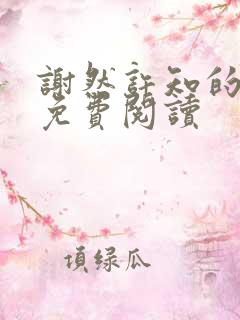 謝然許知的
免費閱讀
頃綠瓜